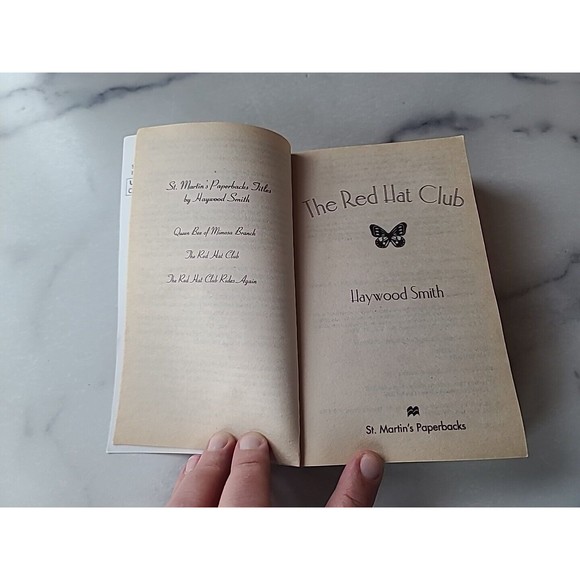 St. Martin's Paperbacks Titles
by Haywood Smith
Queen Bee of Mimosa Branch
The Red Hat Club
The Red Hat Club Rides Again
The Red Hat Club
Haywood Smith
St. Martin's Paperbacks